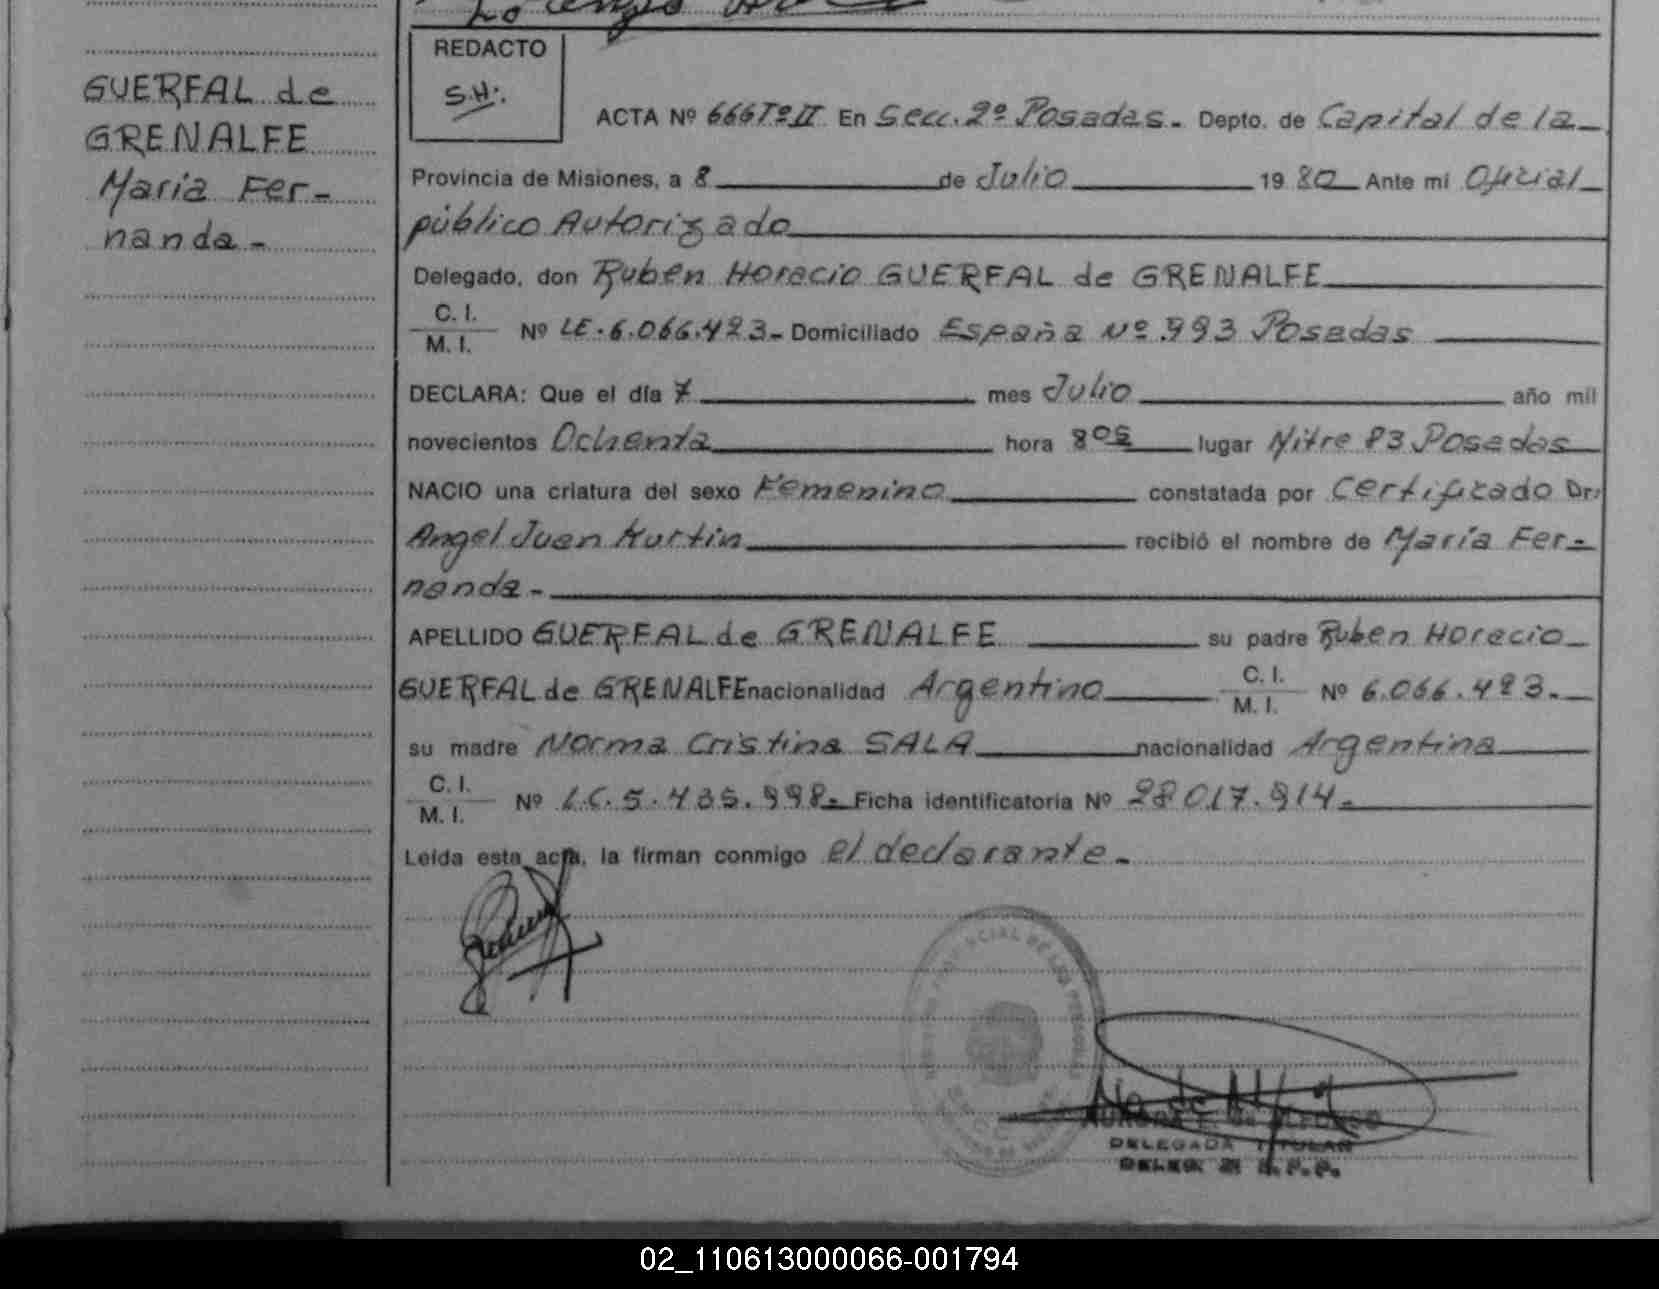 REDACTO
S.H.
GUERFAL de
GRENALFE
María Fer-
nanda-
ACTA Nº 666Tº II En Secc. 2º Posadas- Depto. de Capital de la-
Provincia de Misiones, a 8 de Julio 1980 Ante mi Oficial
público Autorizado
Delegado, don Ruben Horacio GUERFAL de GRENALFE
C. I.
M. I. Nº LE.6.066.423- Domiciliado España Nº 993 Posadas
DECLARA: Que el día 7 mes Julio año mil
novecientos Ochenta hora 8 05 lugar Mitre 83 Posadas
NACIO una criatura del sexo Femenino constatada por Certificado Dr.
Angel Juan Kurtin recibió el nombre de María Fer-
nanda-
APELLIDO GUERFAL de GRENALFE su padre Ruben Horacio
GUERFAL de GRENALFE nacionalidad Argentino C. I.
M. I. Nº 6.066.423.-
su madre Norma Cristina SALA nacionalidad Argentina
C. I.
M. I. Nº L.C. 5.435.998- Ficha identificatoria Nº 28017.914-
Leída esta acta, la firman conmigo el declarante-
DELEGADA TITULAR
02_110613000066-001794